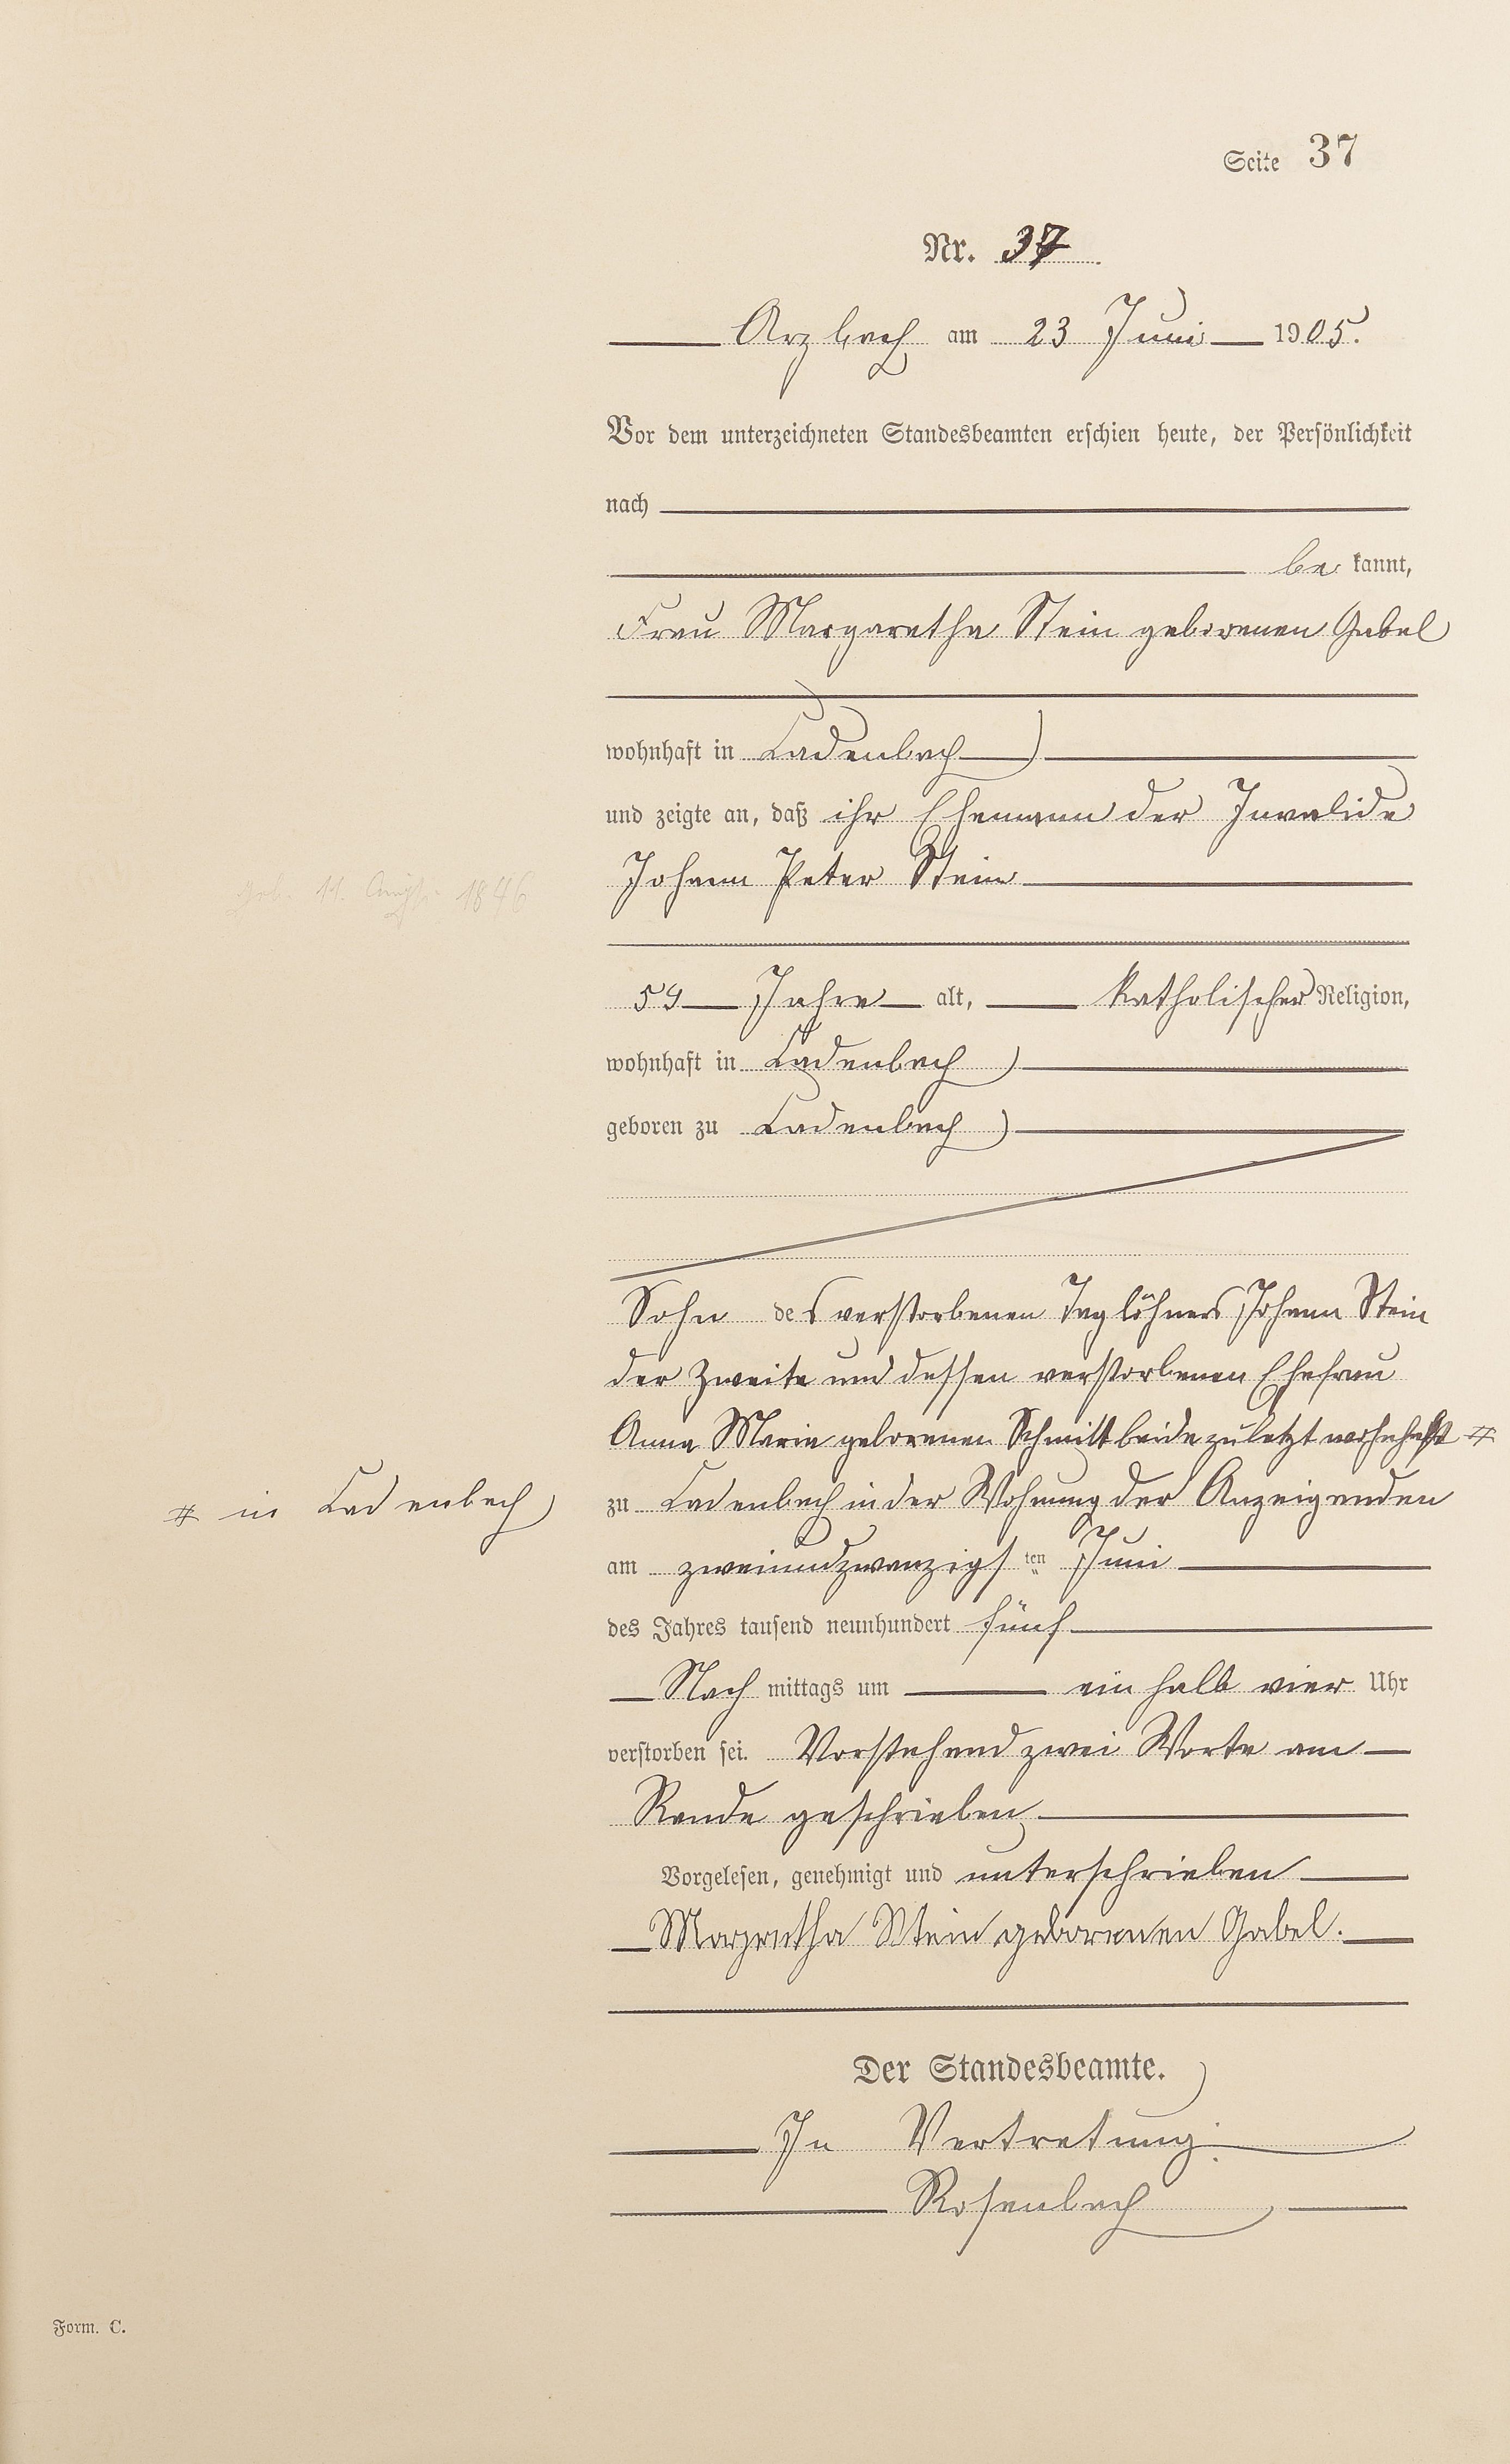 Seite 37
Nr. 37
Arzbach am 23 Juni 1905.
Vor dem unterzeichneten Standesbeamten erschien heute, der Persönlichkeit
nach
be kannt,
Frau Margaretha Stein geborenen Gabel
wohnhaft in Cadenbach
und zeigte an, daß ihr Ehemann der Invalide
Johann Peter Stein
geb. 11. August 1846
59 Jahre alt, katholischer Religion,
wohnhaft in Cadenbach
geboren zu Cadenbach
Sohn des verstorbenen Taglöhners Johann Stein
der Zweite und dessen verstorbenen Ehefrau
Anna Maria geborenen Schmitt beide zuletzt wohnhaft #
# in Cadenbach
zu Cadenbach in der Wohnung der Anzeigenden
am zweiundzwanzigsten Juni
des Jahres tausend neunhundert fünf
Nach mittags um ein halb vier Uhr
verstorben sei. Vorstehend zwei Worte am
Rande geschrieben
Vorgelesen, genehmigt und unterschrieben
Margretha Stein geborenen Gabel.
Der Standesbeamte.
In Vertretung.
Rosenbach
Form. C.